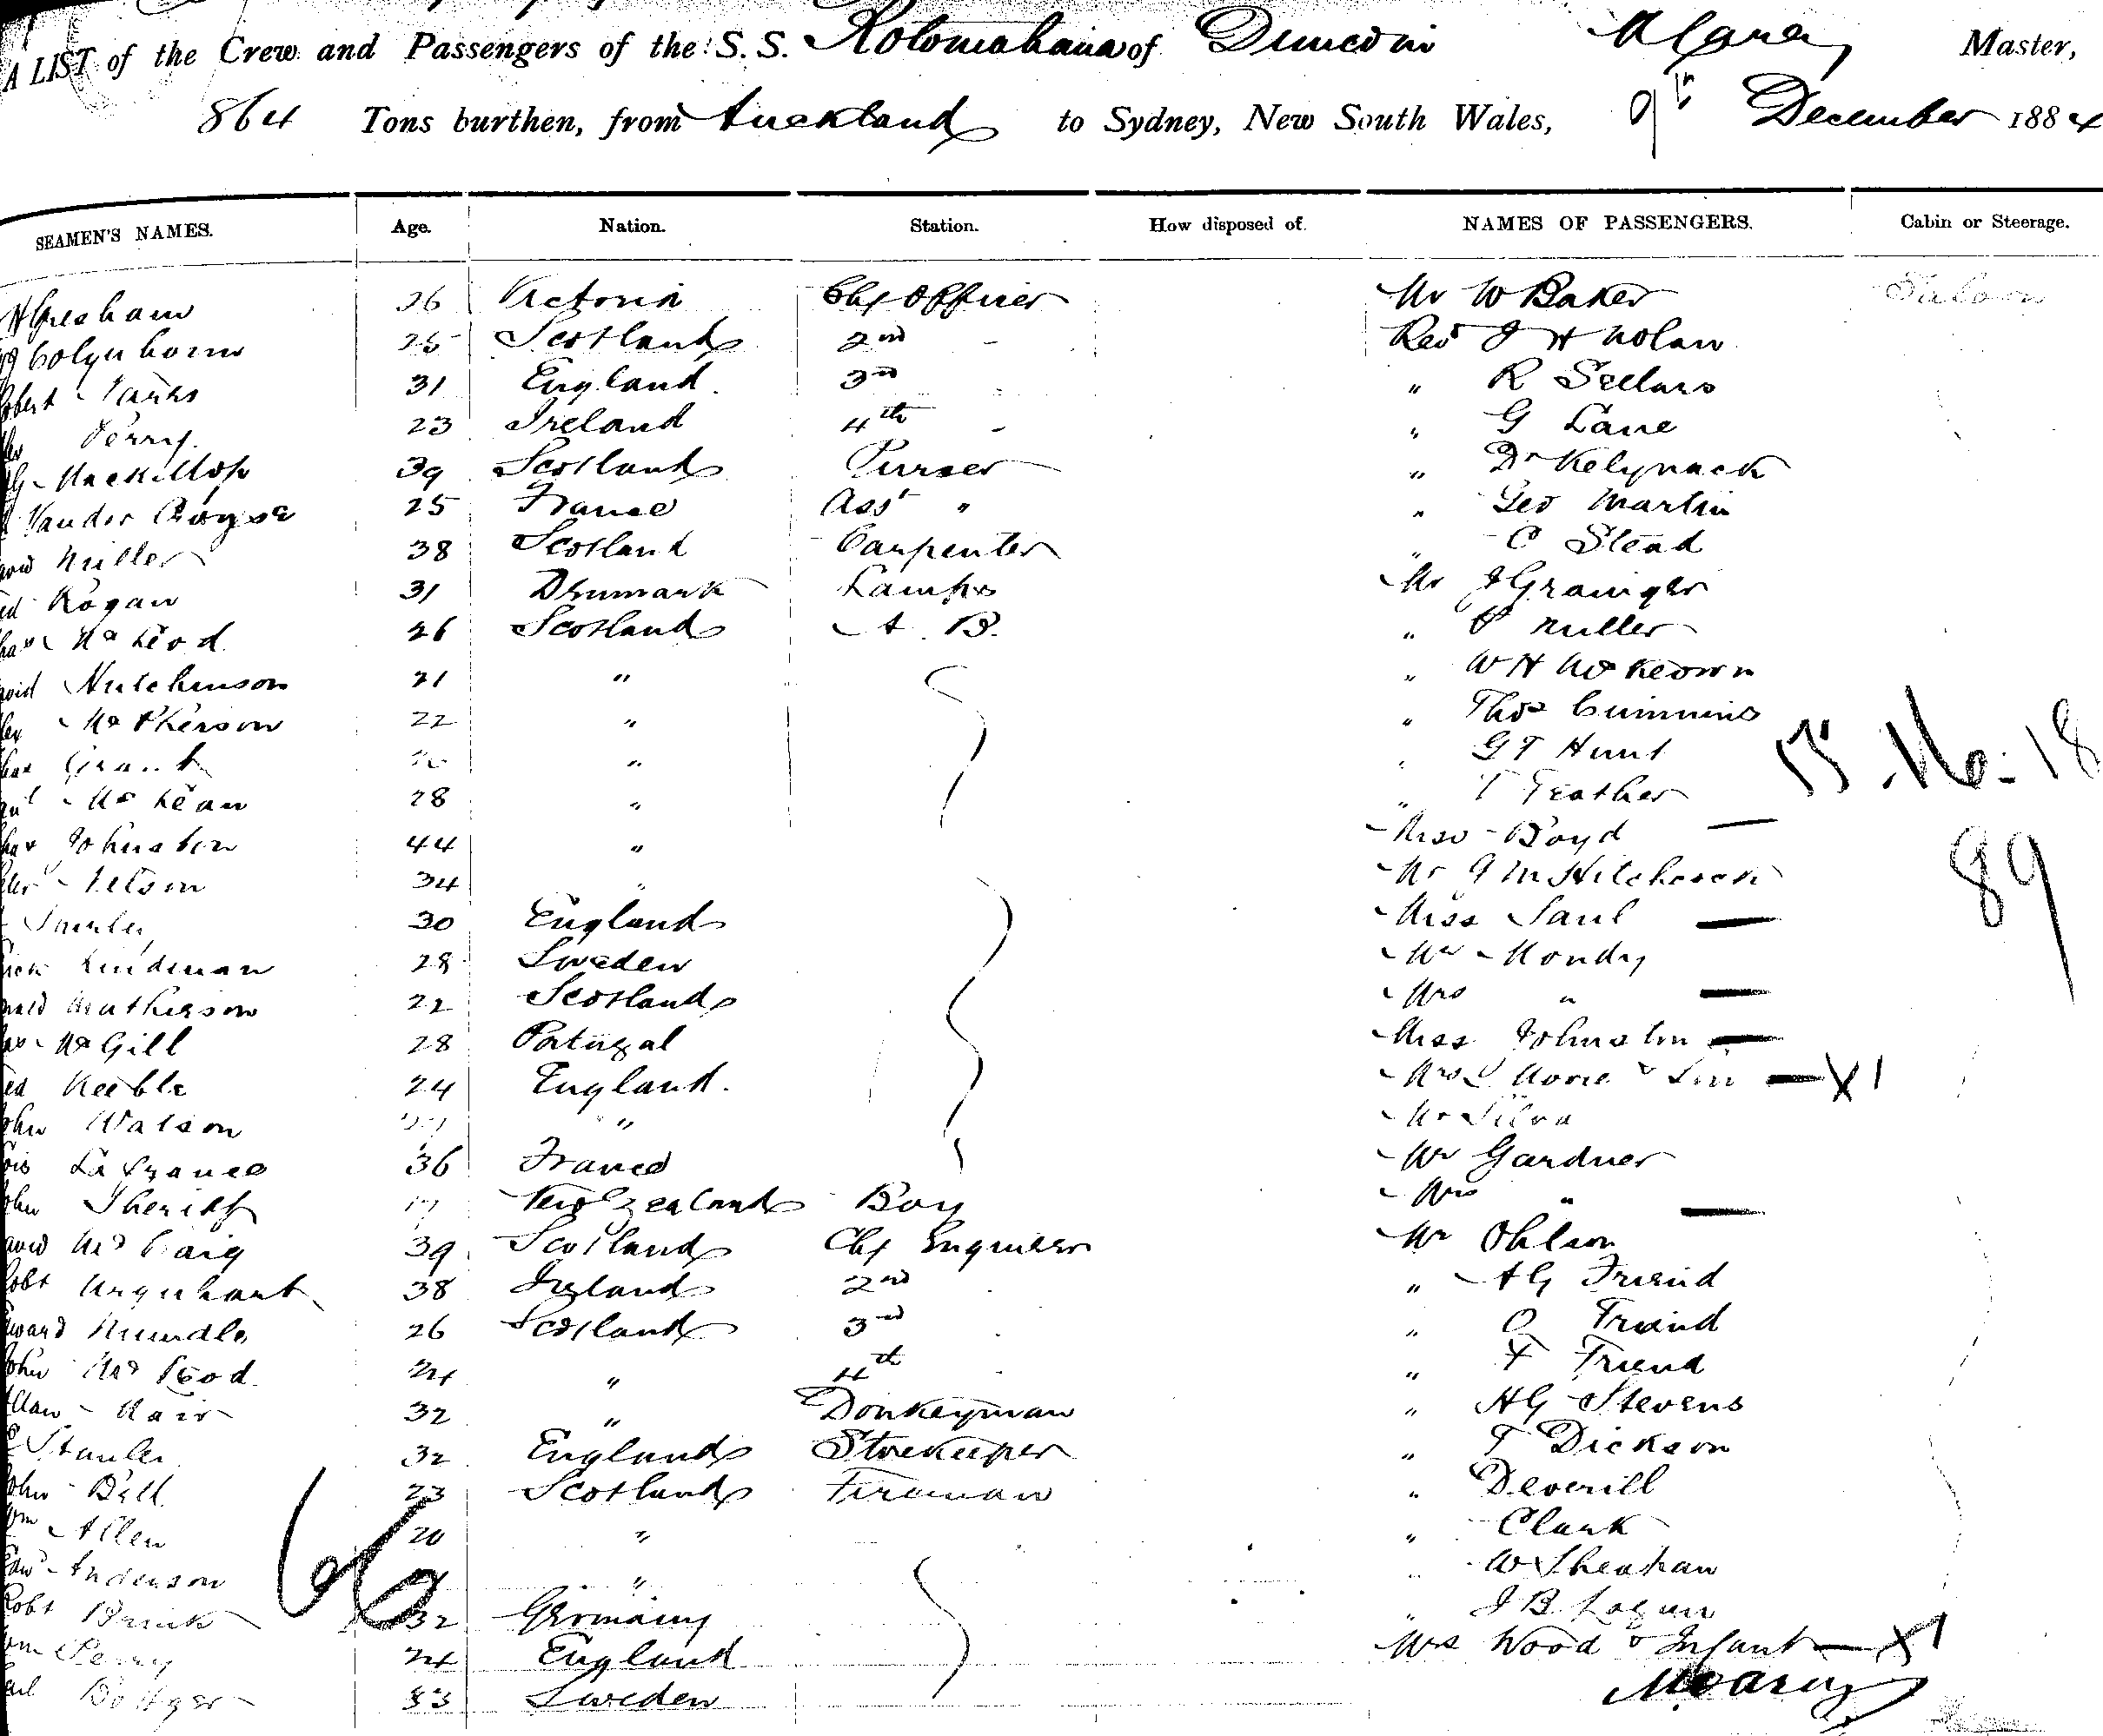 A LIST of the Crew and Passengers of the S. S. Rotomahana of Dunedin M Carey Master,
864 Tons burthen, from Auckland to Sydney, New South Wales, 9th December 1884
SEAMEN'S NAMES. Age. Nation. Station. How disposed of. NAMES OF PASSENGERS. Cabin or Steerage.
26 Victoria Chf Officer Mr W Baker Saloon
Colquhoun 25 Scotland 2nd - Revd J H Nolan
obert 31 England 3rd " R Sellars
Perry 23 Ireland 4th - " G Lane
Mackillop 39 Scotland Purser " Dr Kelynack
Vander 25 France Asst " " Geo Martin
Miller 38 Scotland Carpenter " C Stead
Rogan 31 Denmark Lamps Mr J Grainger
McLeod 26 Scotland A. B. " Miller
avid Hutchinson 21 " " W H McKeown
McPherson 22 " " Thos Cummins
Grant " " G T Hunt 15.16.18
McLean 28 " " T Feather
Johnston 44 " Miss Boyd — 89
Nelson 34 " Mr G M Hitchcock
30 England Miss Saul —
Lindeman 28 Sweden Mr Mondy
Matheson 22 Scotland Mrs " —
McGill 28 Portugal Miss Johnston —
Keeble 24 England. Mrs & Son — X 1
ohn Watson " Mr Silva
La france 36 France Mr Gardner
ohn Sheriff 17 New Zealand Boy Mrs " —
McCaig 39 Scotland Chf Engineer Mr Ohlson
Robt Urquhart 38 Ireland 2nd " A G Friend
ward Rundle 26 Scotland 3rd " O Friend
John McLeod 24 " 4th " F Friend
Allan Nair 32 " Donkeyman " H G Stevens
32 England Storekeeper " T Dickson
John Bell 23 Scotland Fireman " Deverill
Wm Allen 20 " " Clark
Edw Anderson " " W Sheahan
66
Robt 32 Germany " J B Logan
Wm Perry 24 England Mrs Wood & Infant — X 1
Bottger 33 Sweden M Carey